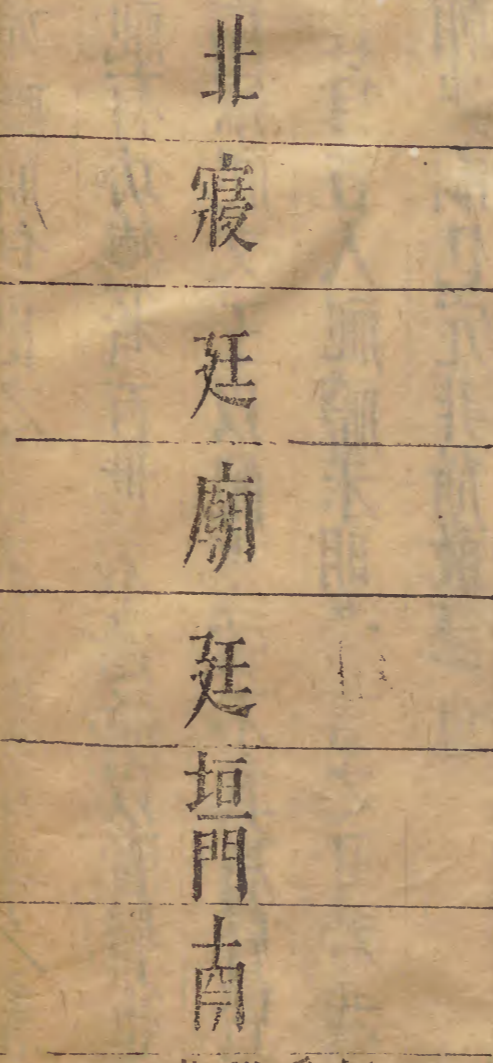 北
寢
廷
廟
廷
垣門
南